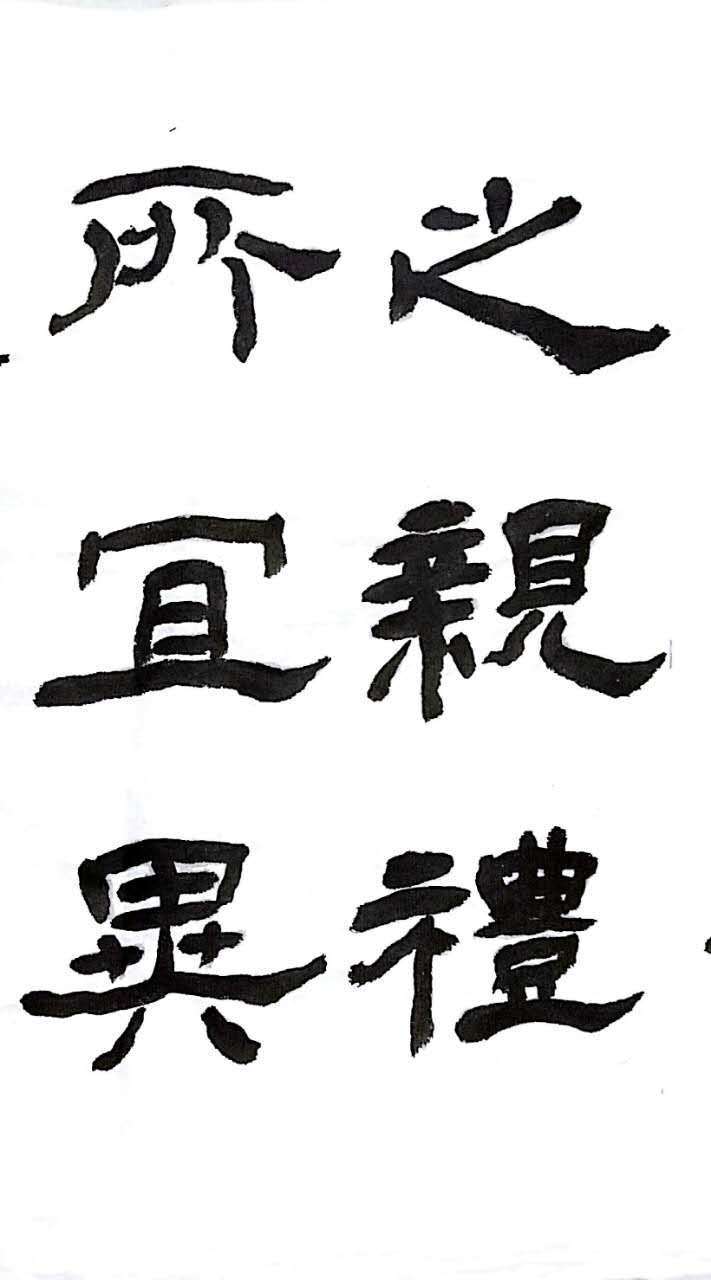 之親禮
所宜異